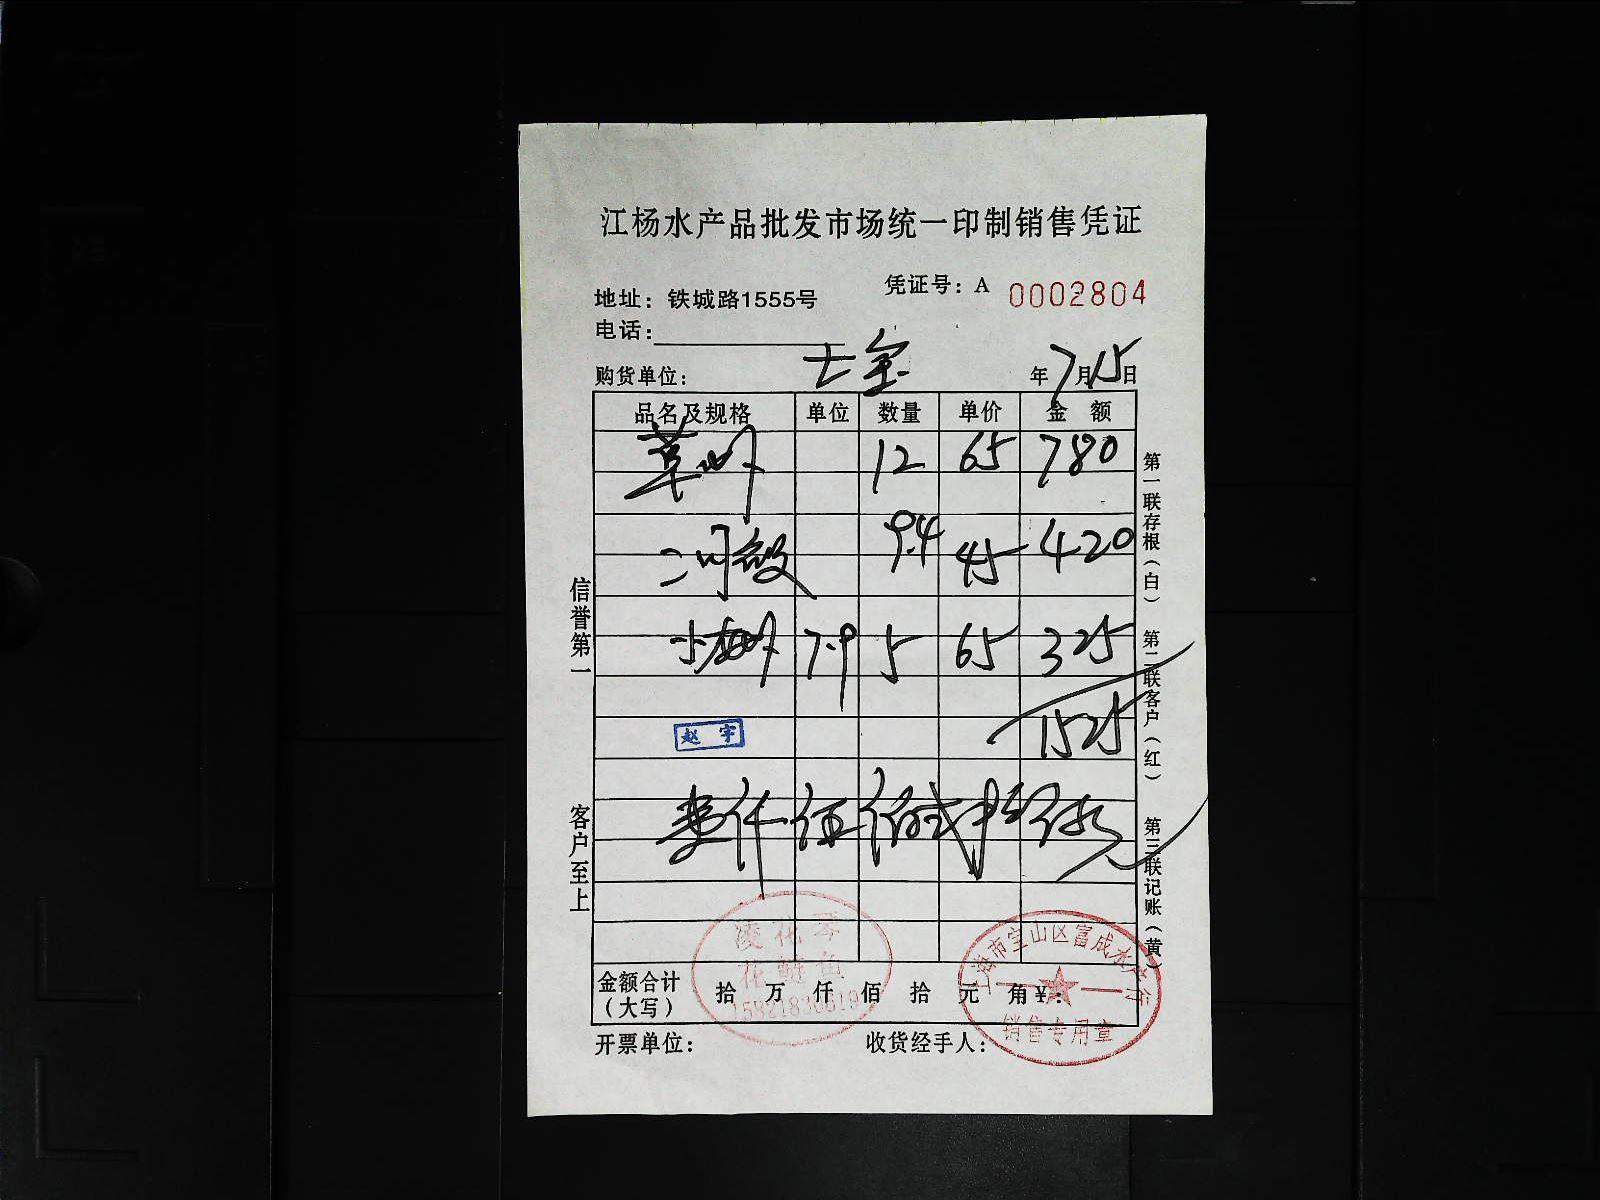 江杨水产品批发市场统一印制销售凭证
凭证号：A 0002804
地址：铁城路1555号
电话：
购货单位： 年 7月15日
品名及规格 单位 数量 单价 金 额
草虾 12 65 780
二河 9.4 45 420
小草虾 7.9 5 65 325
1525
赵 宇
壹仟伍佰弍拾伍元
凌花琴
花鲢鱼
上海市宝山区富成水产行
销售专用章
金额合计（大写） 拾 万 仟 佰 拾 元 角 ¥：
开票单位： 收货经手人：
信誉第一
客户至上
第一联存根（白）
第二联客户（红）
第三联记账（黄）